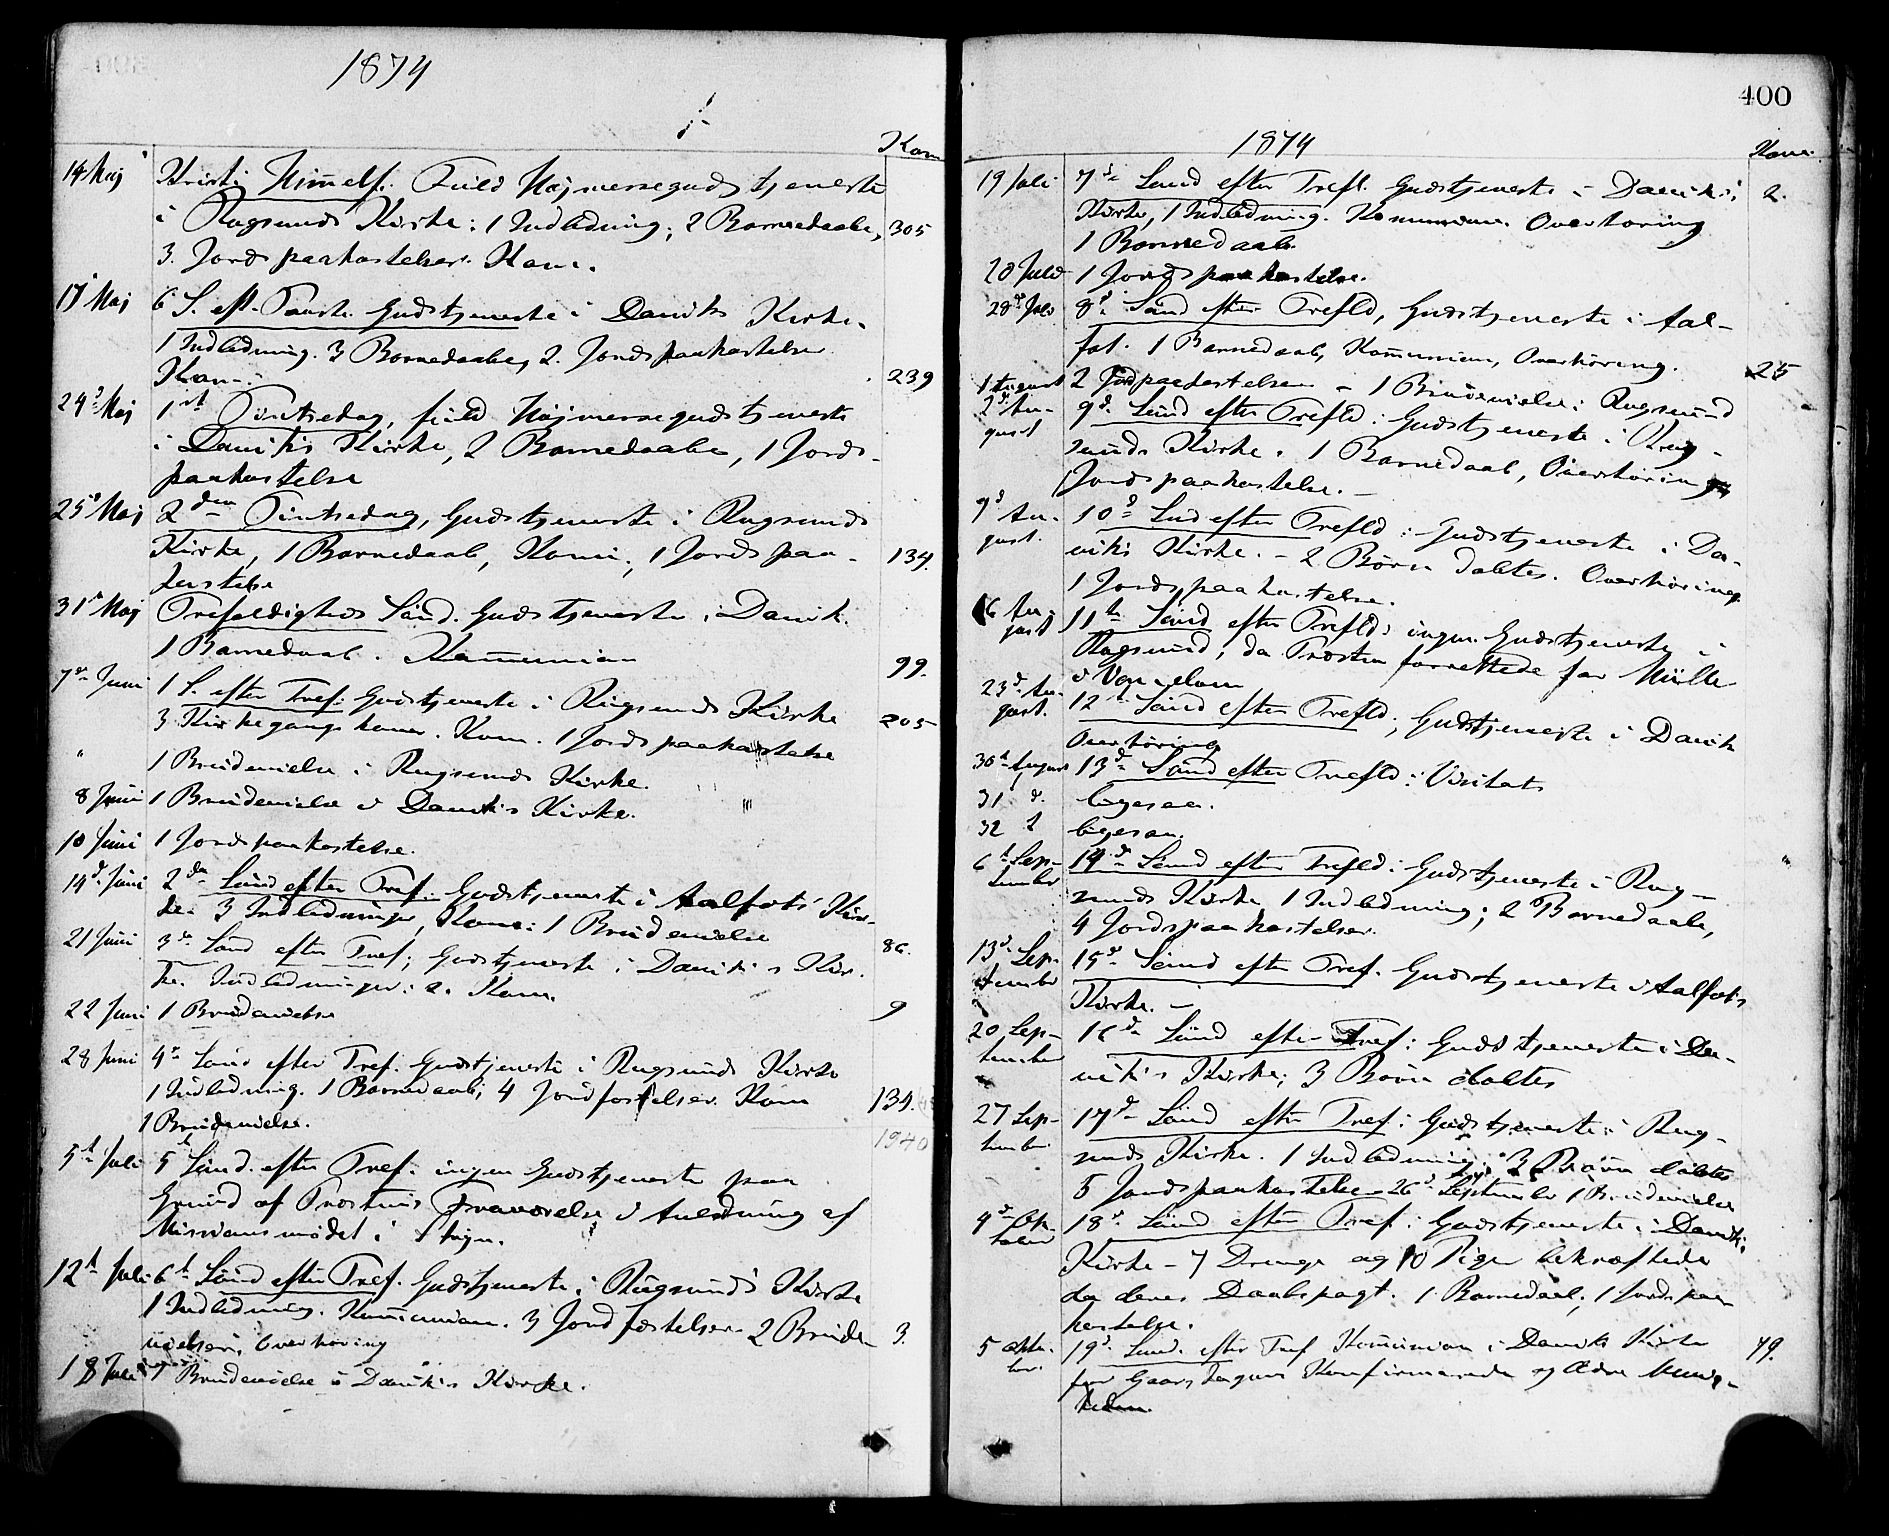 1874
Kom
14 Maj Kristi Himelf. Fuld Højmessegudstjeneste
i Rugsunds Kirke: 1 Indledning; 2 Barnedaabe, 305
3 Jordspaakastelser. Kom.
17 Maj 6 S. eft. Paaske Gudstjeneste i Daviks Kirke.
1 Indledning. 3 Barnedaabe, 2 Jordspaakastelser
Kom. 239
24 Maj 1ste Pintsedag, fuld Højmessegudstjeneste
i Daviks Kirke, 2 Barnedaabe, 1 Jords-
paakastelse
25 Maj 2den Pintsedag, Gudstjeneste i Rugsunds
Kirke, 1 Barnedaab, Komn., 1 Jordspaa- 134.
kastelse
31 Maj Trefoldigheds Sünd. Gudstjeneste i Davik.
1 Barnedaab. Kommunion 99.
7de Juni 1 S. efter Tref: Gudstjeneste i Rugsunds Kirke
3 Kirkegangskoner. Kom. 1 Jordspaakastelse 205
" 1 Brudevielse i Rugsunds Kirke.
8 Juni 1 Brudevielse i Daviks Kirke.
10 Juni 1 Jordspaakastelse.
14d Juni 2den Sünd efter Tref: Gudstjeneste i Aalfots Kir-
ke. 3 Indledninger, Kom: 1 Brudevielse
21 Juni 3de Sünd efter Tref; Gudstjeneste i Daviks Kir- 86.
ke. Indledninger: 2. Kom.
22 Juni 1 Brudevielse 9
28 Juni 4de Sünd efter Tref. Gudstjeneste i Rugsunds Kirke
1 Indledning. 1 Barnedaab; 4 Jordfæstelser. Kom 134.
1 Brudevielse.
1940
5t Juli 5t Sünd. efter Tref. ingen Gudstjeneste paa
Grund af Provstens Fraværelse i Anledning af
Missionsmødet i
12t Juli 6t Sünd efter Tref. Gudstjeneste i Rugsunds Kirke
1 Indledning. Kommunion. 3 Jordfæstelser. 2 Brude- 3.
vielser, Overhøring
18 Juli 1 Brudevielse i Daviks Kirke.
400
1874
Kom.
19 Juli 7de Sünd efter Tref. Gudstjeneste i Daviks 2.
Kirke, 1 Indledning. Kommunion. Overhøring
1 Barnedaab.
20 Juli 1 Jordspaakastelse.
28 Juli 8d Sünd efter Trefld, Gudstjeneste i Aal-
fot. 1 Barnedaab, Kommunion, Overhøring. 25
1 August 2 Jordpaakastelser - 1 Brudevielse i Rugsund
2d Au-
gust 9d Sünd efter Trefld: Gudstjeneste i Rug-
sunds Kirke. 1 Barnedaab, Overhøring
Jordspaakastelse. -
9d Au-
gust. 10d Sünd efter Trefld: Gudstjeneste i Da-
viks Kirke. - 2 Børn døbtes. Overhøring
1 Jordspaakastelse.
16 Au-
gust 11te Sünd efter Trefld: ingen Gudstjeneste i
Rugsund, da Provsten forrettede for Müller
i
23d Au-
gust. 12te Sünd efter Trefld; Gudstjeneste i Davik
Overhøring
30t August 13d Sünd efter Trefld: Visitats
31 d. ligesaa.
32 d ligesaa.
6t Sep-
tember 14d Sünd efter Trefld: Gudstjeneste i Rug-
sunds Kirke 1 Indledning; 2 Barnedaabe,
4 Jordspaakastelser.
13d Sep-
tember 15d Sünd efter Tref. Gudstjeneste i Aalfots
Kirke. -
20 Sep-
tember 16d Sünd efter Tref: Gudstjeneste i Da-
viks Kirke; 3 Børn døbtes
27 Sep-
tember 17d Sünd efter Tref: Gudstjeneste i Rug-
sunds Kirke. 1 Indledning; 3 Børn døbtes
5 Jordspaakastelser 26d September 1 Brudevielse
4d
18d Sünd efter Tref: Gudstjeneste i Daviks
Kirke - 7 Drenge og 10 Piger bekræftede
da deres Daabspagt. 1 Barnedaab; 1 Jordspaa-
kastelse.
5 Okto-
ber. 19d Sünd. efter Tref Kommunion i Daviks Kirke 79.
for Gaarsdagens Konfirmerede og Ædru Menig-
heden.